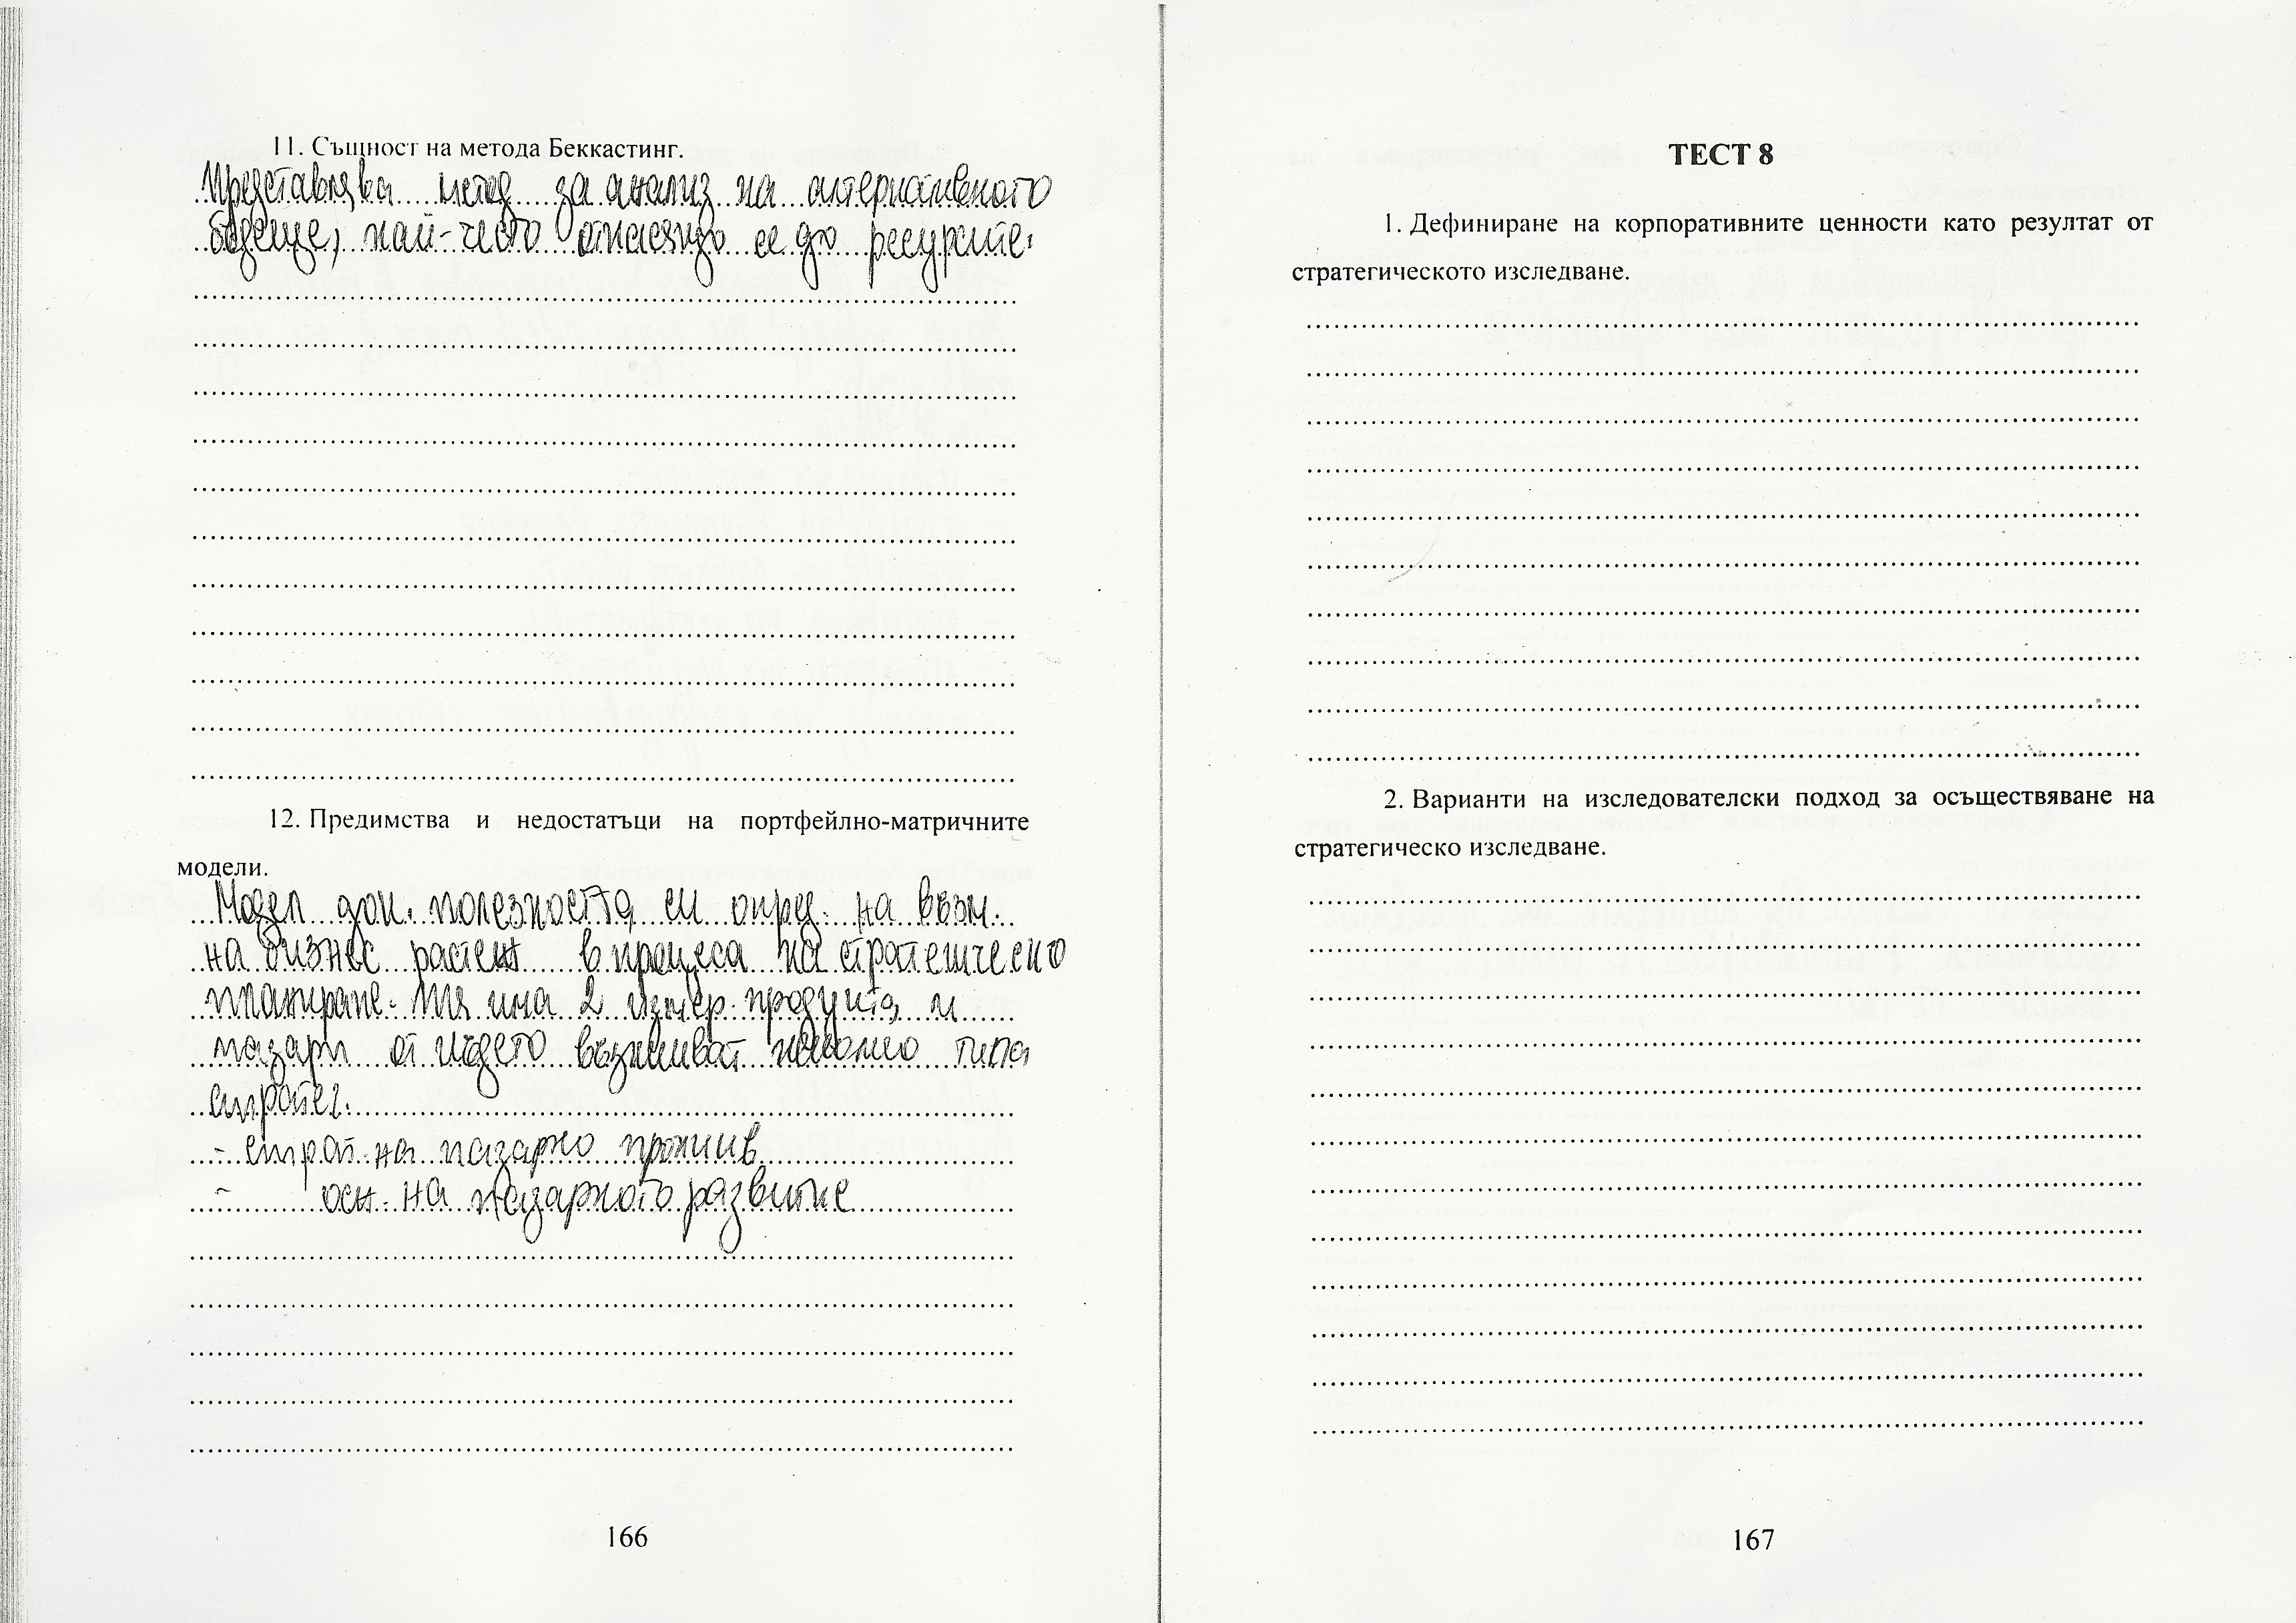 11. Същност на метода Беккастинг.
Представлява метод за анализ на алтернативното
бъдеще, най-често отнасящо се до ресурсите.
12. Предимства и недостатъци на портфейлно-матричните
модели.
Модел док. полезността си опред. на възм.
на бизнес растеж в процеса на стратегическо
планиране. Тя има 2 измер. продукта и
пазари от където възникват няколко типа
стратег.
- страт. на пазарно проникв.
- осн. на пазарното развитие
166
ТЕСТ 8
1. Дефиниране на корпоративните ценности като резултат от
стратегическото изследване.
2. Варианти на изследователски подход за осъществяване на
стратегическо изследване.
167